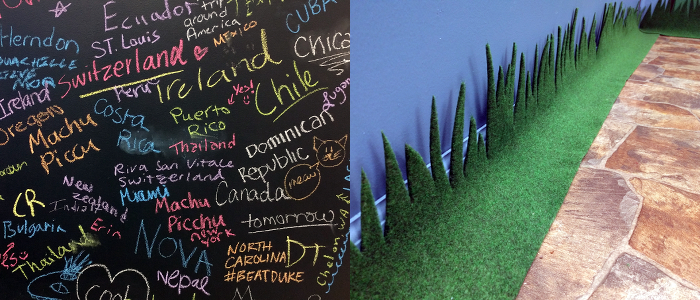 Ecuador
trip
around
America
CUBA
Herndon
ST. Louis
MEXICO
Chica
Switzerland
Ireland
Peru
Ireland
Yes!
Chile
Oregon
Machu
Piccu
Costa
Rica
Puerto
Rico
Thailand
Dominican
Republic
meow
Riva San Vitale
Switzerland
New
Zealand
Miami
Canada
CR
Machu
Picchu
new
york
tomorrow
Bulgaria
Erin
NOVA
Thailand
NORTH
CAROLINA
#BEATDUKE
DT
Nepal